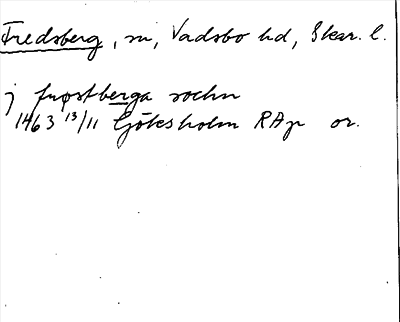 Fredsberg, sn, Vadsbo hd, Skar. l.
j frøstberga sochn
1463 13/11 Göksholm RAp or.